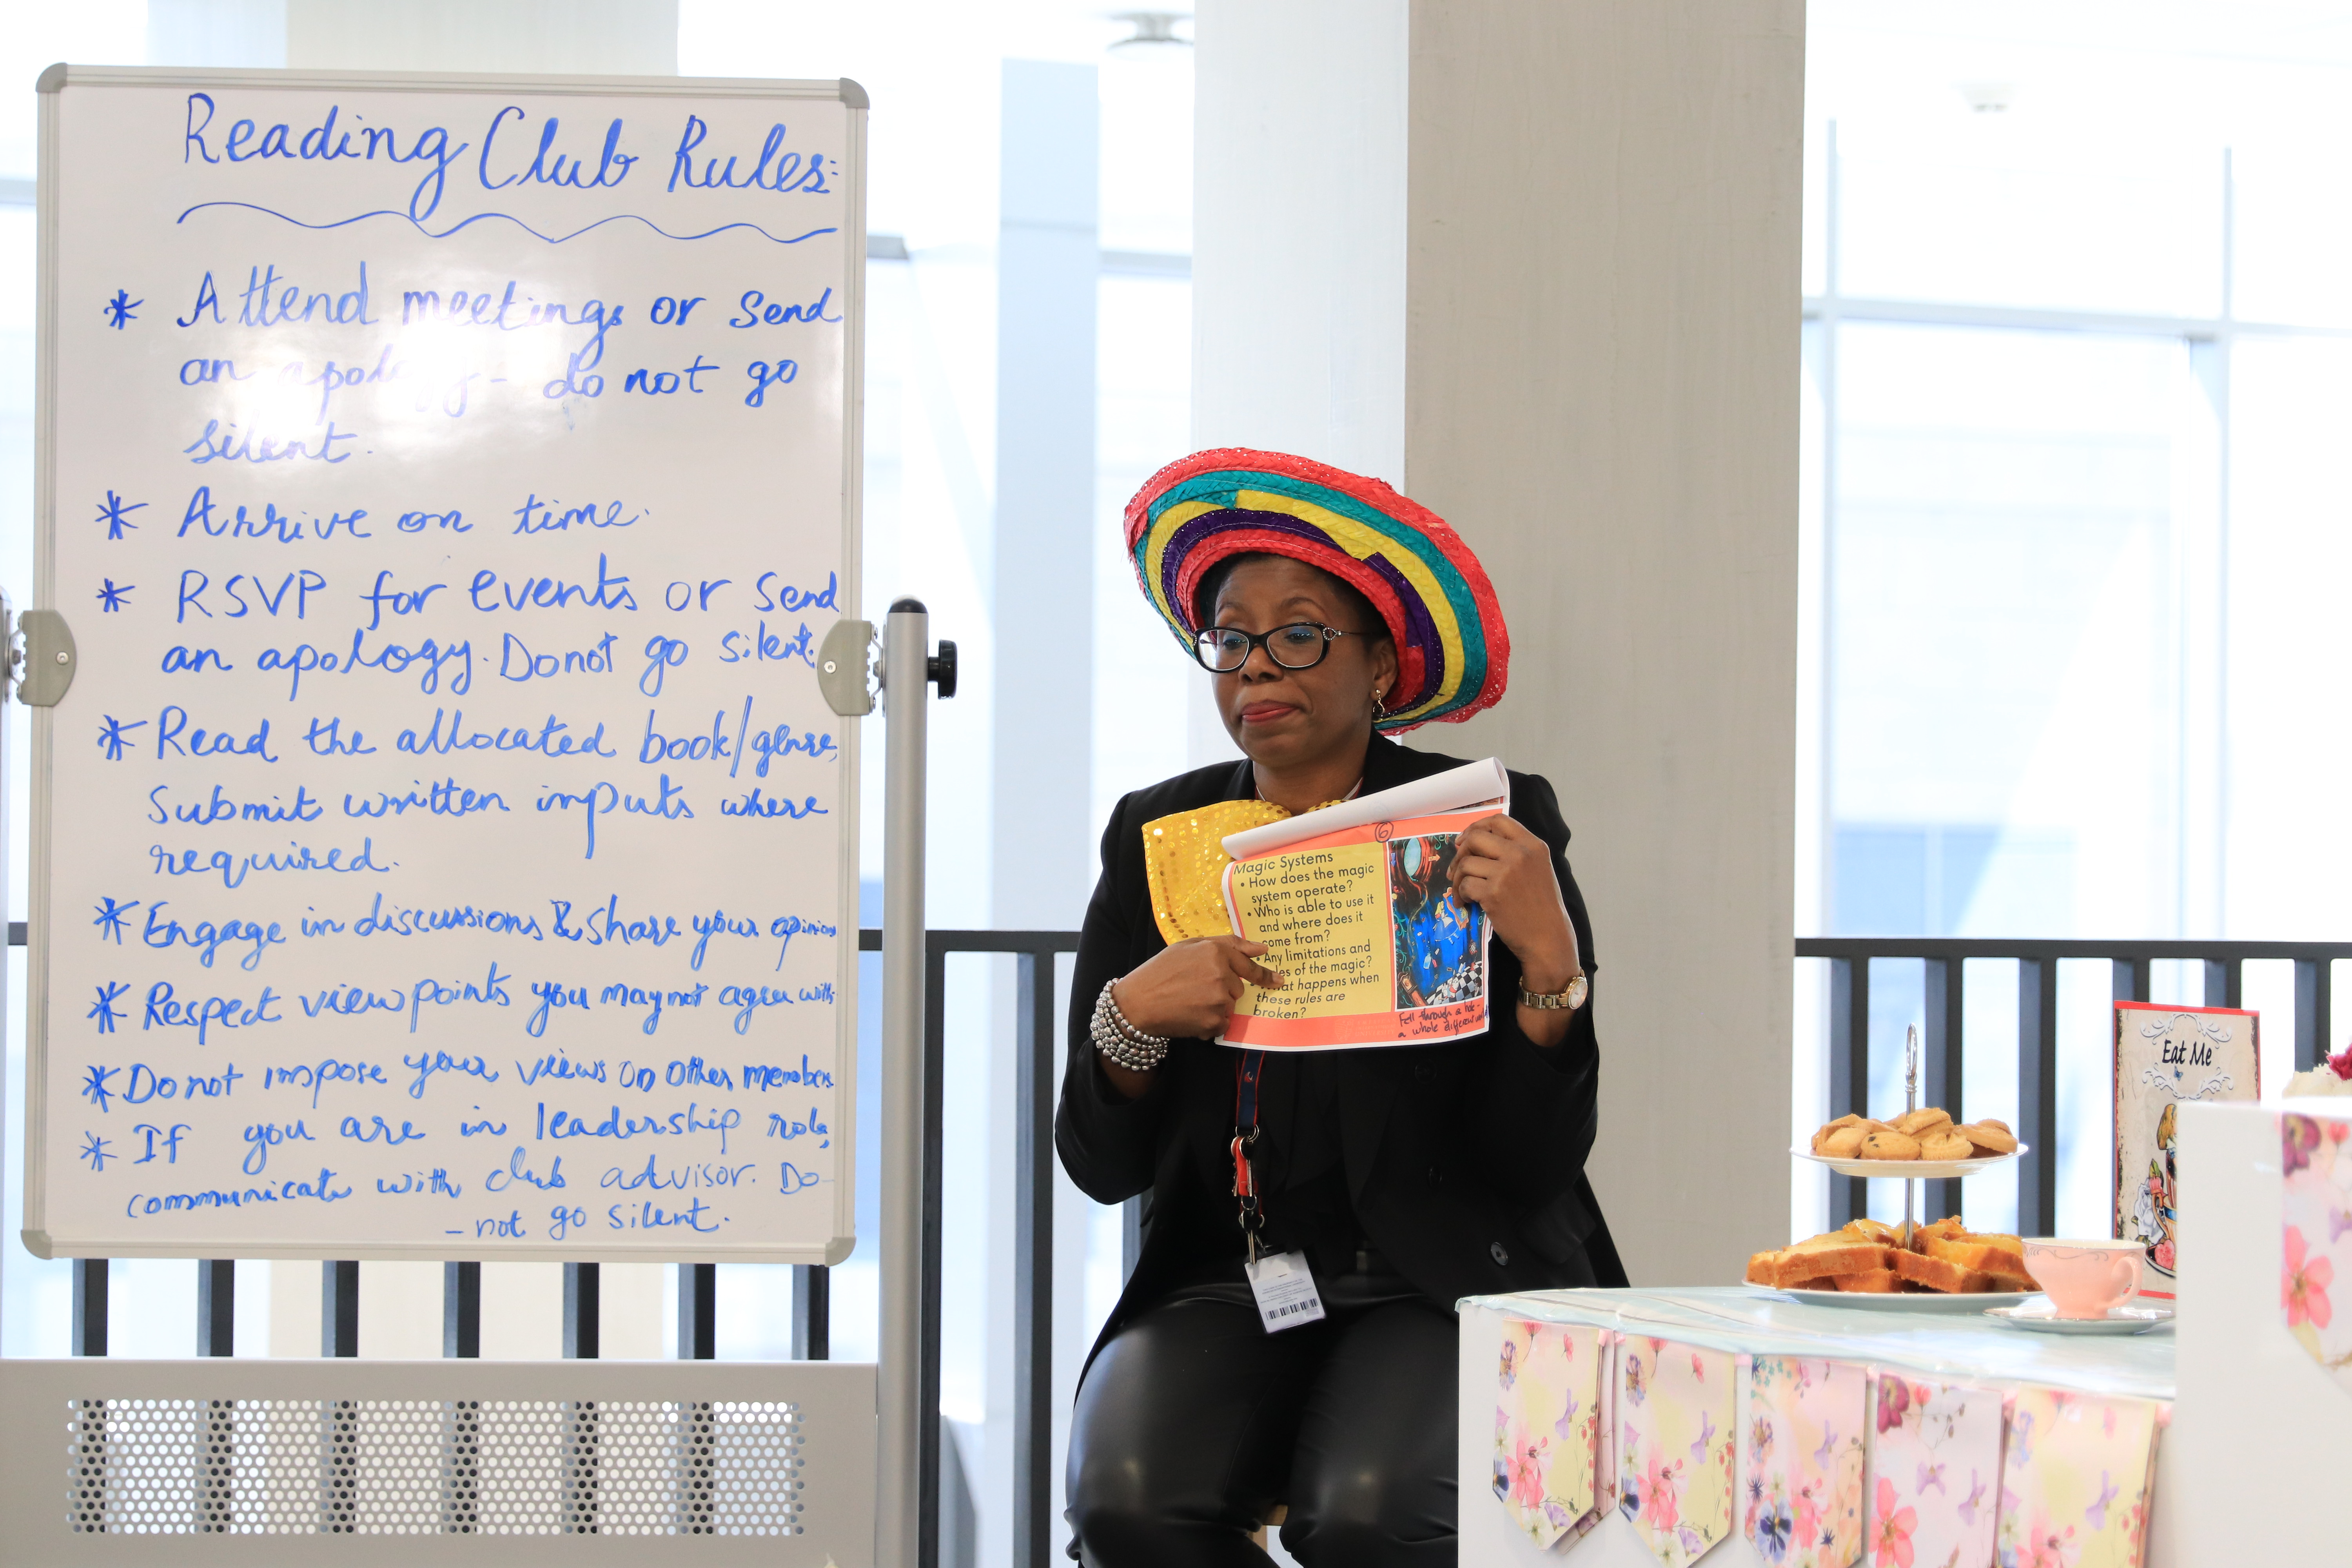 Reading Club Rules:
* Attend meetings or send
an apology - do not go
silent.
* Arrive on time.
* RSVP for events or send
an apology. Do not go silent.
* Read the allocated book/genre,
Submit written inputs where
required.
* Engage in discussions & share your opinions
* Respect viewpoints you may not agree with.
* Do not impose your views on other members
* If you are in leadership role,
communicate with club advisor. Do
- not go silent.
6
Magic Systems
• How does the magic
system operate?
• Who is able to use it
and where does it
come from?
• Any limitations and
of the magic?
happens when
these rules are
broken?
Fell through a
a whole different
Eat Me